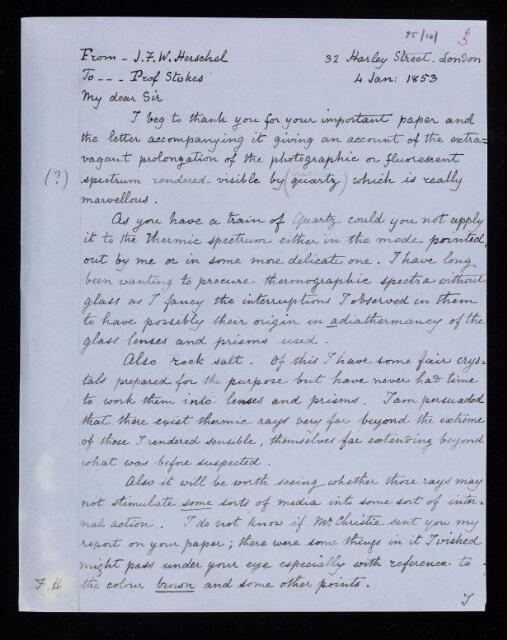 25/10/ 3
From - J.F.W. Herschel 32 Harley Street. London
To --- Prof Stokes 4 Jan: 1853
My dear Sir
I beg to thank you for your important paper and
the letter accompanying it giving an account of the extra-
vagant prolongation of the photographic or fluorescent
(?) spectrum rendered visible by (quartz) which is really
marvellous.
As you have a train of Quartz could you not apply
it to the thermic spectrum either in the mode pointed
out by me or in some more delicate one. I have long
been wanting to procure thermographic spectra without
glass as I fancy the interruptions I observed in them
to have possibly their origin in adiathermancy of the
glass lenses and prisms used.
Also rock salt. Of this I have some fair crys-
tals prepared for the purpose but have never had time
to work them into lenses and prisms. I am persuaded
that there exist thermic rays very far beyond the extreme
of those I rendered sensible, themselves far extending beyond
what was before suspected.
Also it will be worth seeing whether those rays may
not stimulate some sorts of media into some sort of inter-
nal action. I do not know if Mr Christie sent you my
report on your paper; there were some things in it I wished
might pass under your eye especially with reference to
J.H. the colour brown and some other points.